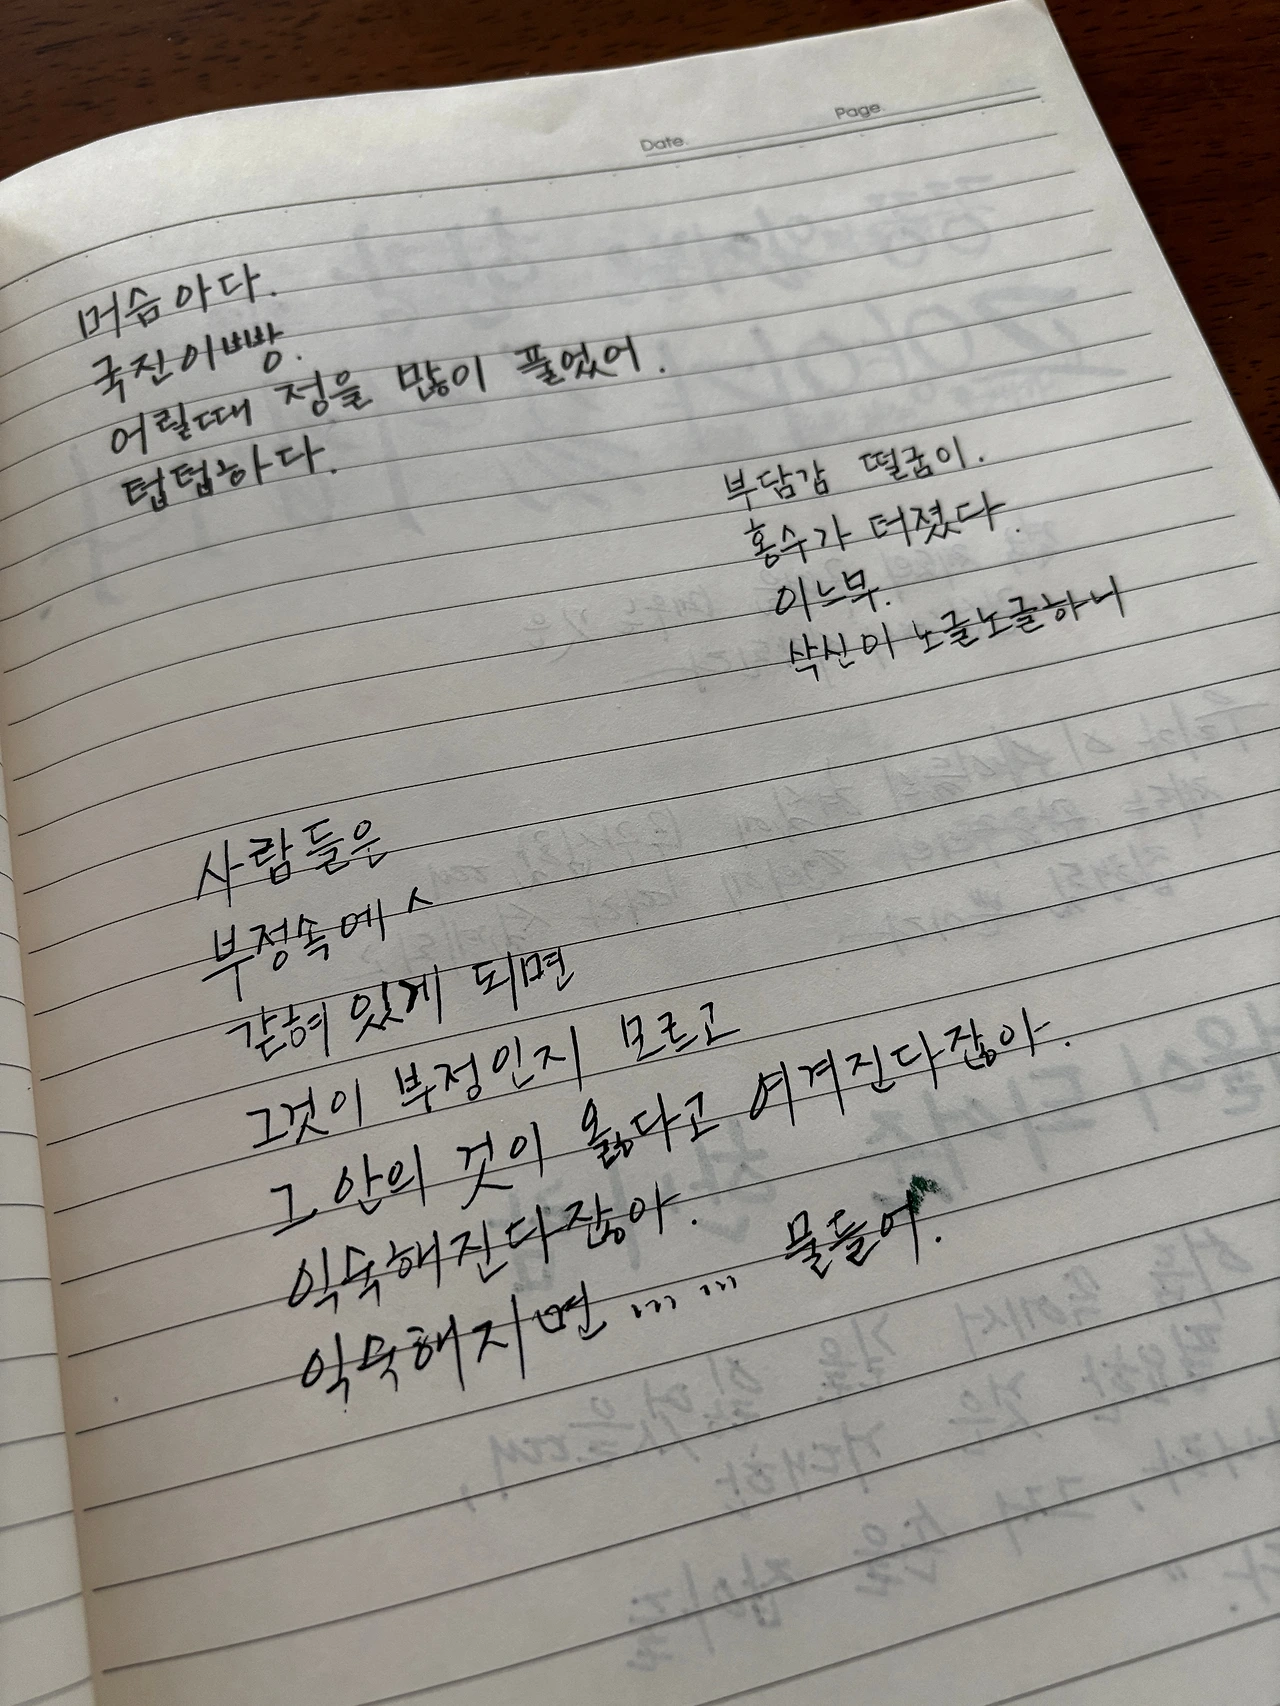 Date.
Page.
머슴아다.
국진이빵.
어릴때 정을 많이 풀었어.
텁텁하다.
부담감 떨굼이.
홍수가 터졌다.
이느무.
삭신이 노글노글하니
사람들은
부정속에
갇혀 있게 되면
그것이 부정인지 모르고
그 안의 것이 옳다고 여겨진다잖아.
익숙해진다잖아.
익숙해지면 ... ... 물들어.